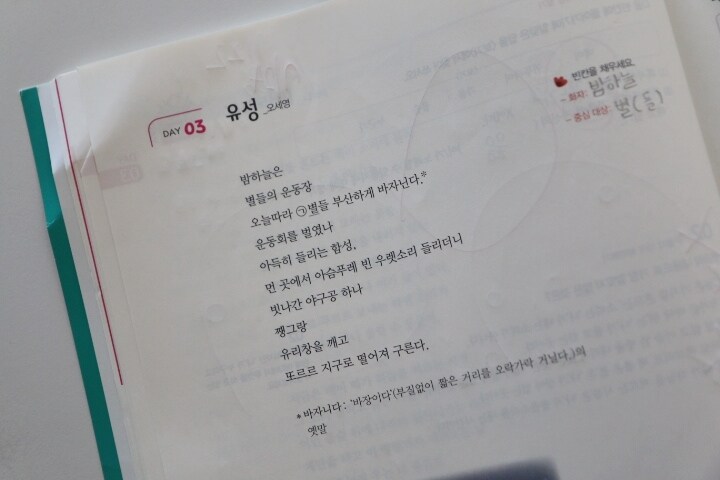 DAY 03 유성 _오세영
빈칸을 채우세요
- 화자: 밤하늘
- 중심 대상: 별(들)
밤하늘은
별들의 운동장
오늘따라 ㉠별들 부산하게 바자닌다.*
운동회를 벌였나
아득히 들리는 함성,
먼 곳에서 아슴푸레 빈 우렛소리 들리더니
빗나간 야구공 하나
쨍그랑
유리창을 깨고
또르르 지구로 떨어져 구른다.
* 바자니다 : '바장이다'(부질없이 짧은 거리를 오락가락 거닐다.)의
옛말